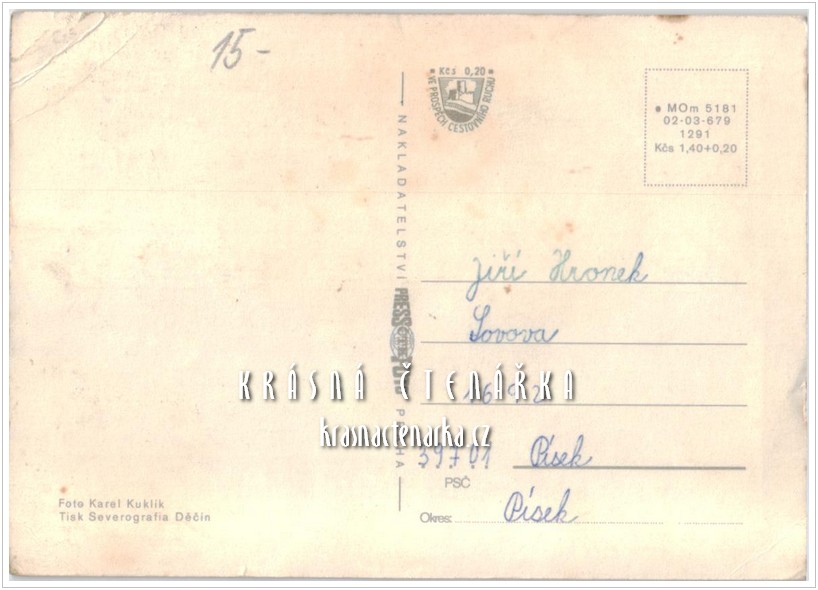 15-
Kčs 0,20
VE PROSPĚCH CESTOVNÍHO RUCHU
MOm 5181
02-03-679
1291
Kčs 1,40+0,20
NAKLADATELSTVÍ PRESSFOTO PRAHA
Jiří Hronek
Sovova
KRÁSNÁ ČTENÁŘKA
krasnactenarka.cz
397 01 Písek
PSČ
Okres: Písek
Foto Karel Kuklík
Tisk Severografia Děčín